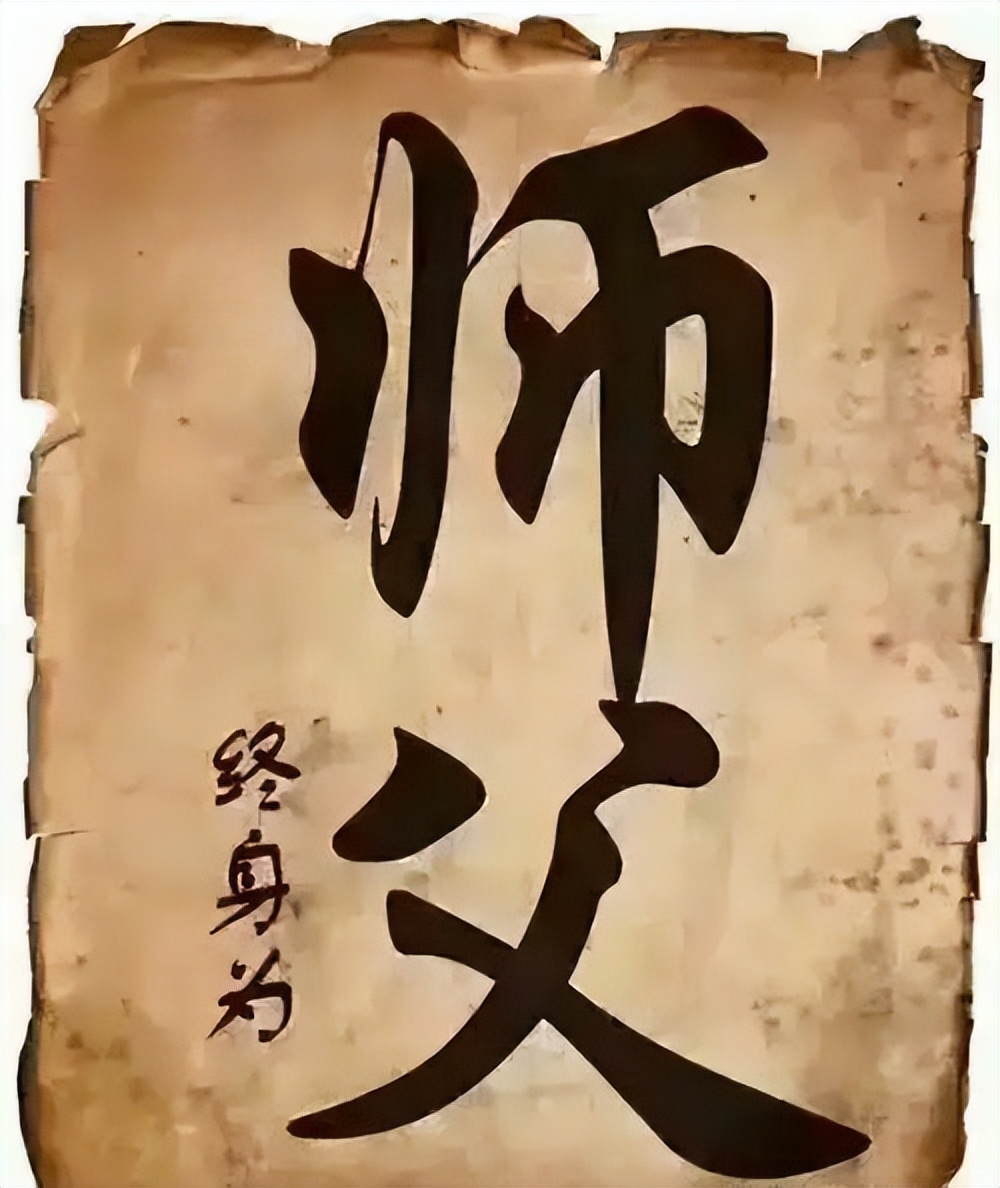 师父
终身为